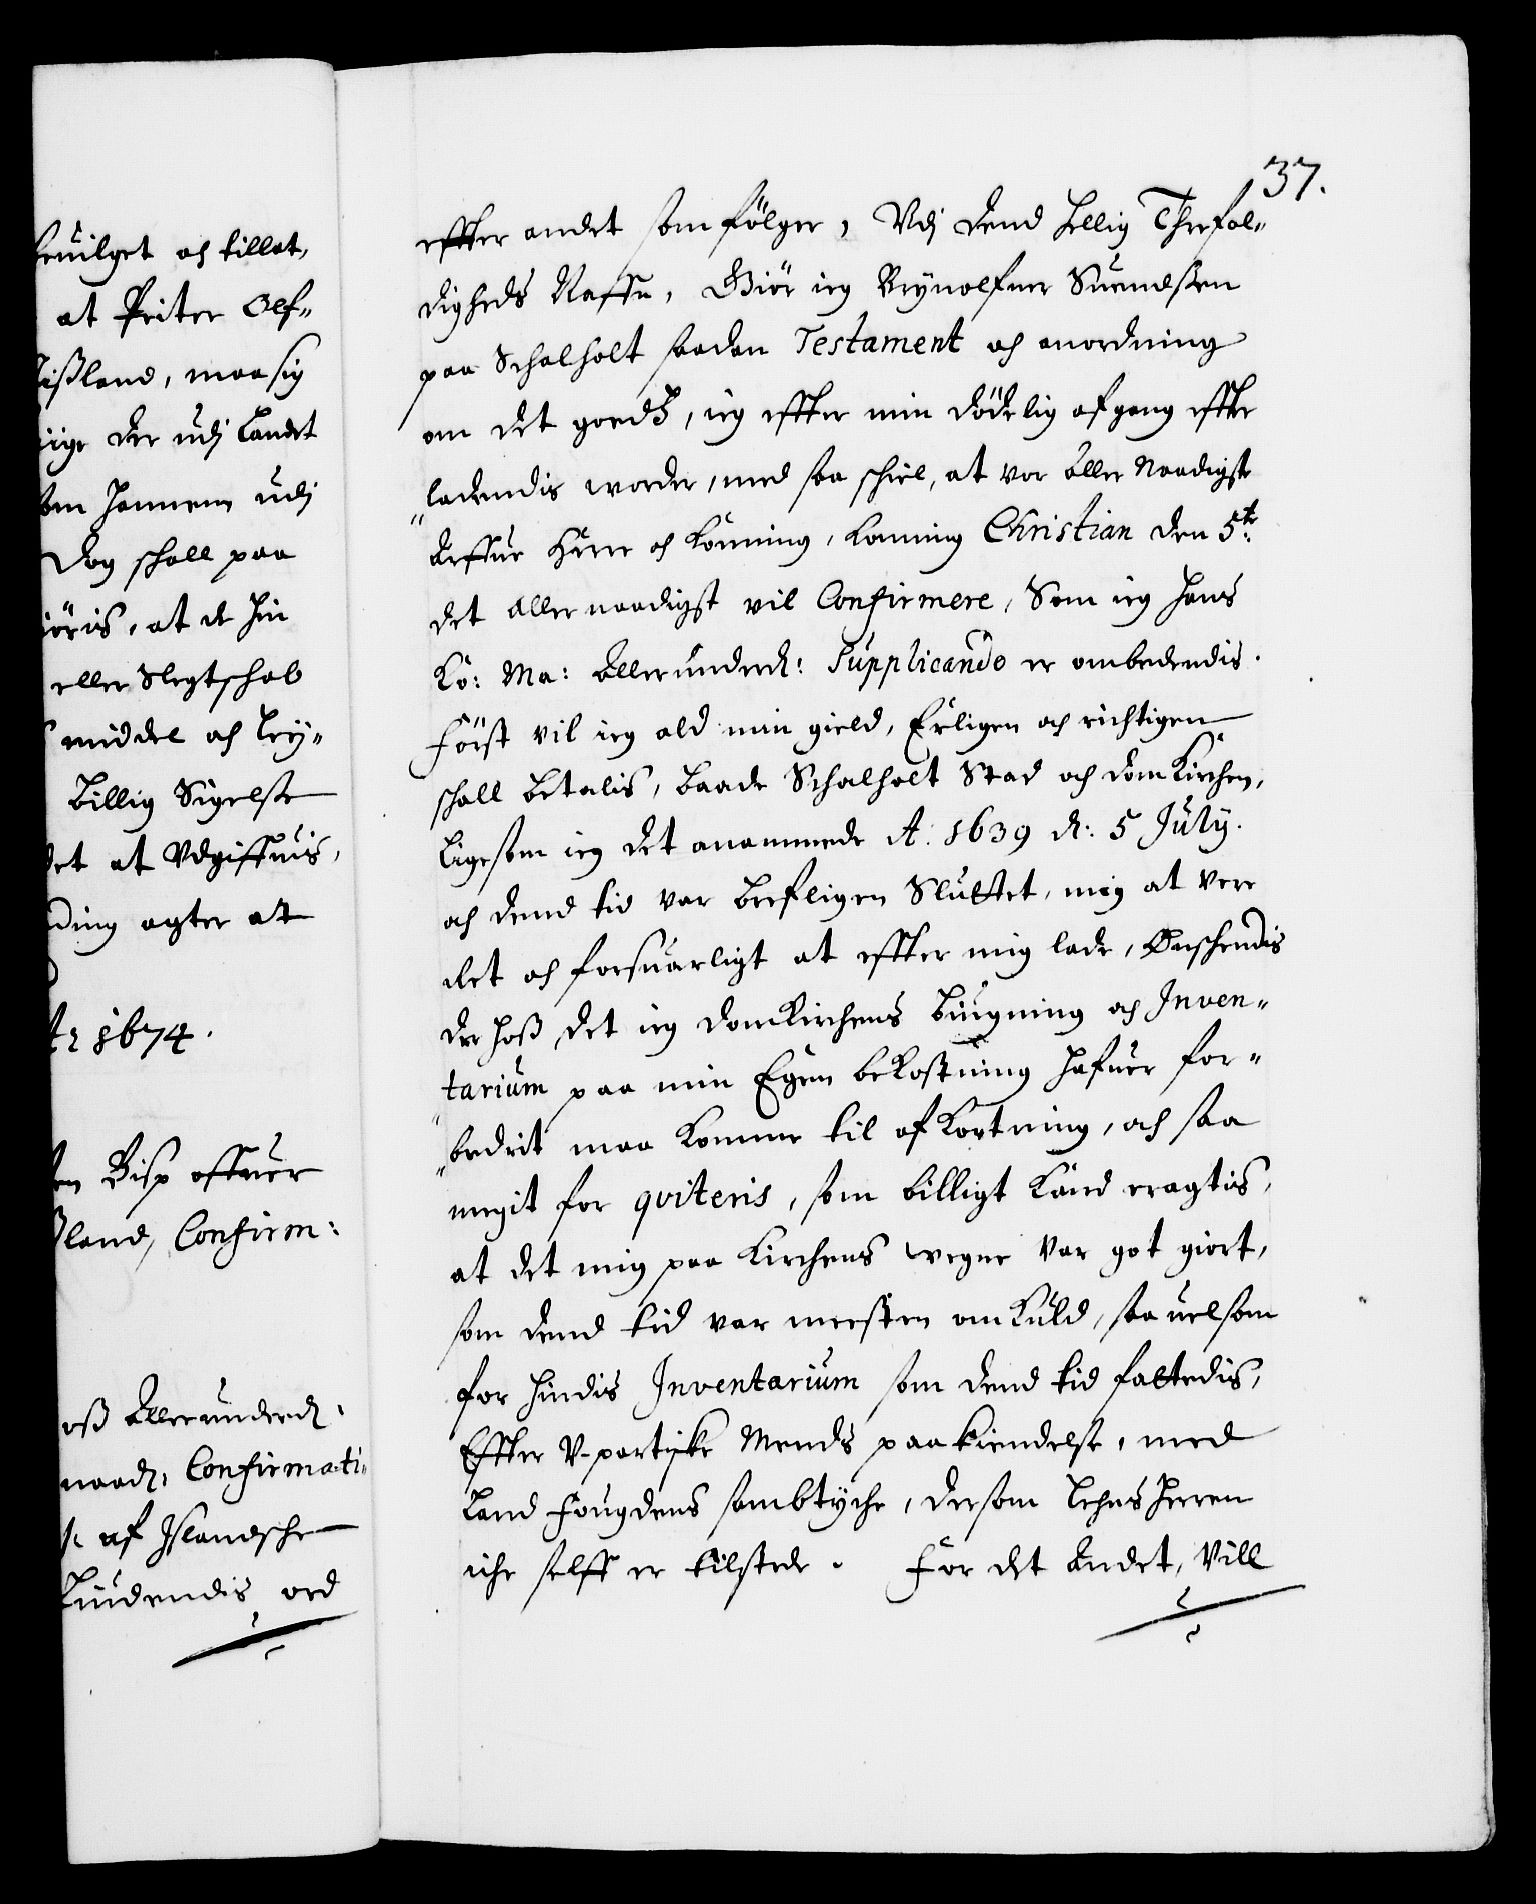 beuilget och tillat,
at Peiter Olf-
Jißland, maa sig
iige der udj Landet
ben hannem udj
Dog schall paa
iöris, at de hin
eller Slegtschab
middel och Ley-
billig Sigelse
det at Vdgiffuis,
ding agter at
1674.
en Bisp offuer
land, Confirm:
oß Allerunderd:
naad: Confirmati-
af Jslandsche
Liudendis ord
37.
effter andet som fölger, Vdj dend hellig Threfol-
digheds Naffn, Giör ieg Brynolfuer Suendßen
paa Schalholt saadan Testament och anordning
om det goedß, ieg effter min dödelig afgang effter
ladendis worder, med saa schiel, at vor Aller Naadigste
Arffue Herre och Konning, Konning Christian den 5te
det Allernaadigst vil Confirmere, Som ieg Hans
Ko: Ma: Allerunderd: Supplicando er ombedendis.
Först vil ieg ald min gield, Erligen och richtigen
schall betalis, baade Schalholt Stad och domKirchen,
Ligesom ieg det anammede A: 1639 d: 5 July.
och dend tid var brefligen Sluttet, mig at vere
det och forsuarligt at effter mig lade, Ønschendis
der hoß det ieg domKirchens biugning och Inven-
tarium paa min Egen beKostning hafuer for-
bedrit maa Komme til afKortning, och saa
megit for qviteris, som billigt Kand eragtis,
at det mig paa Kirchens wegne var got giort,
som dend tid var meesten omKuld, saauelsom
for hindis Inventarium som dend tid fattedis,
Effter V-partiske Mends paakiendelse, med
Land Fougdens sambtyche, dersom Lehns Herren
iche selff er tilstede. For det Andet, Vill